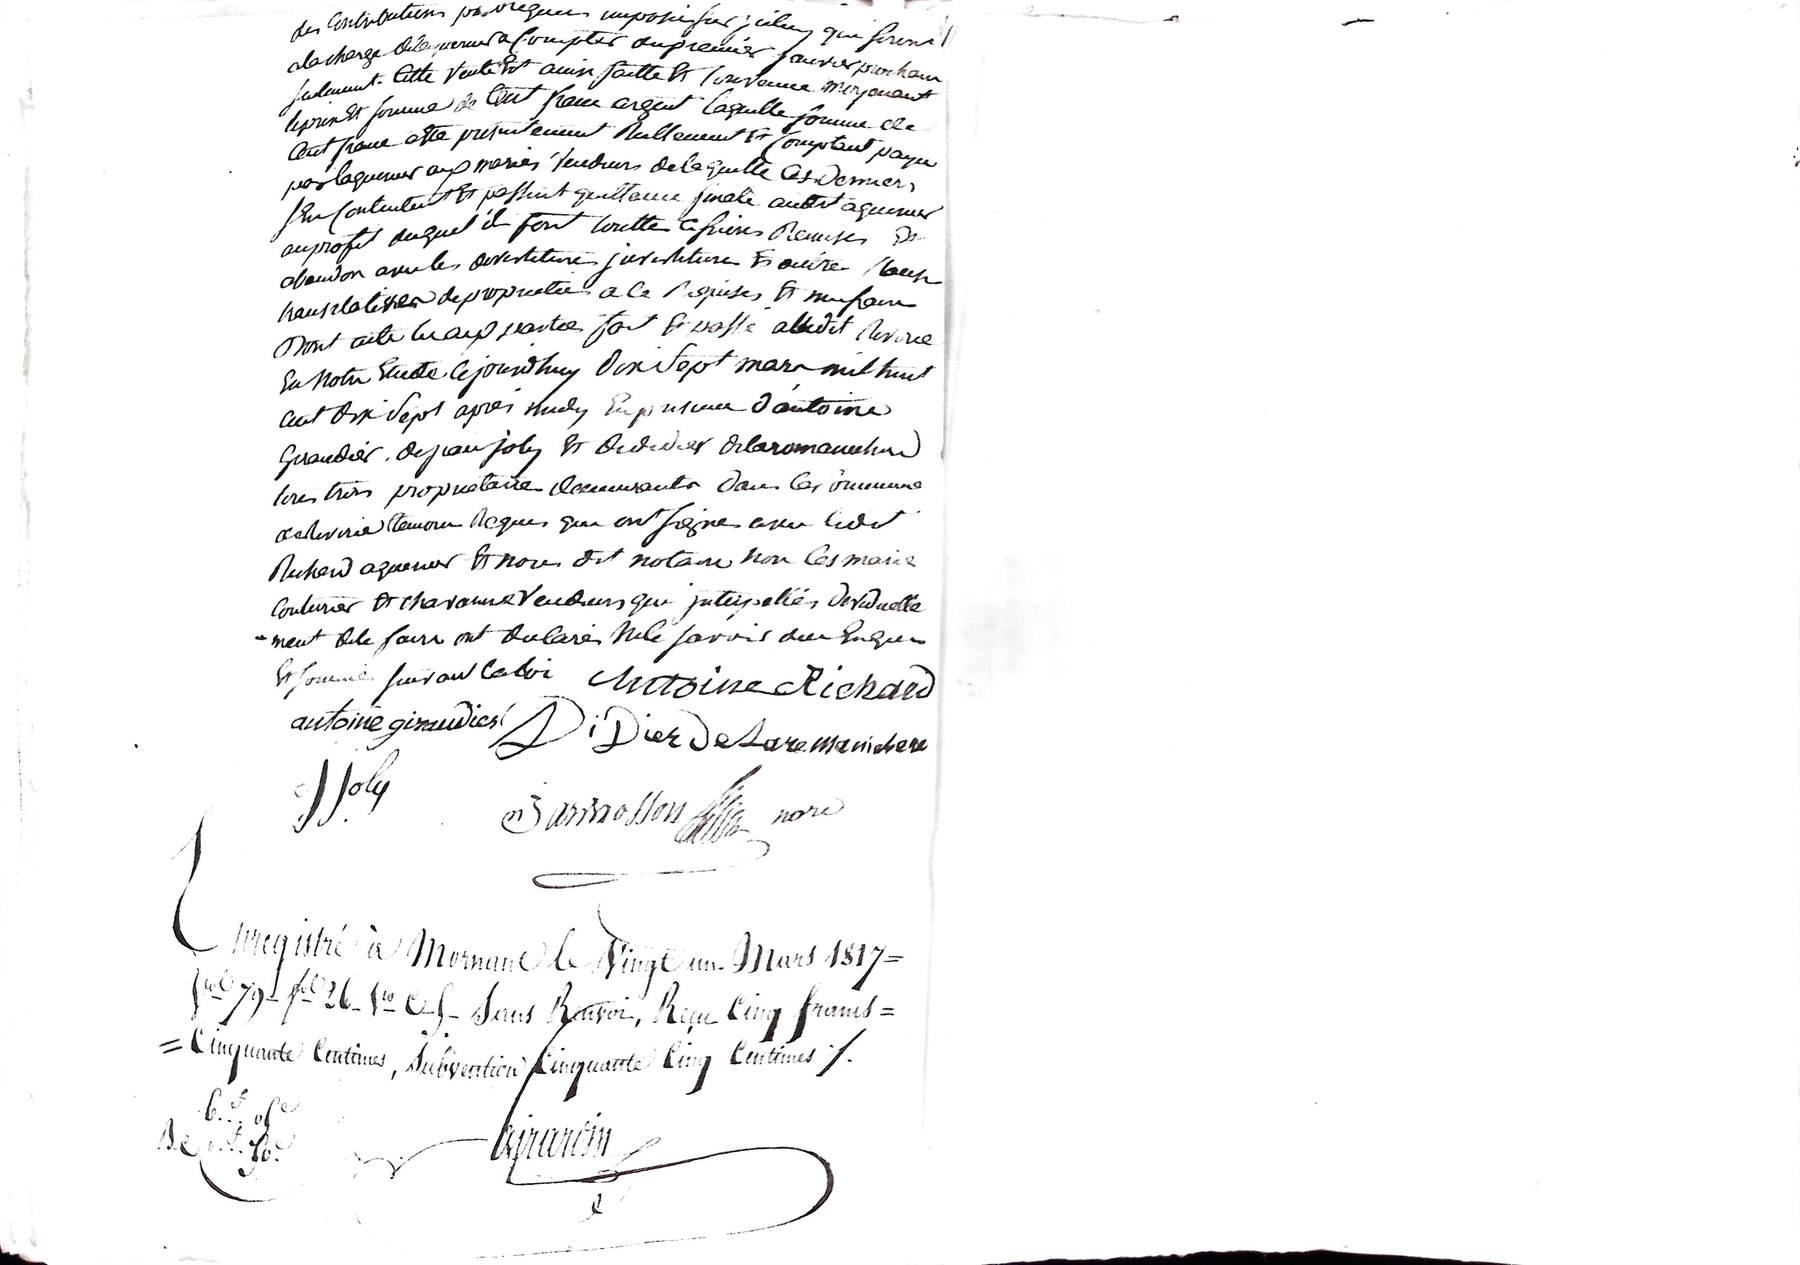 des Contributions publiques imposés sur jceluy qui seront
alacharge delaquereur a Compter dupremier janvier prochain
seulement. Cette Vente Est ainsi faitte Et Convenue moyenant
leprix Et somme de Cent franc argent laquelle somme de
Cent franc a Ete presentement Reellement Et Comptant payée
par laquereur aux mariés Vendeurs de laquelle Ces Derniers
sen Contentent Et passent quittance finale audit aquereur
auprofit duquel ils font toutte Remises Et
abandon avec les devestiture jnvestiture Et autre Clause
translatives de propriettés a Ce Requises Et necessaire
Dont acte lu aux parties fait Et passé audit Riverie
En Notre Etude Cejourdhuy Dix Sept mars mil huit
cent Dix Sept apres midy En presence D'antoine
Giraudier. de jean joly Et de didier Delaromanchere
tous trois proprietaires demeurants Dans la Commune
de Riverie temoins Requis qui ont signés avec ledit
Richard aquereur Et Nous dit notaire non les mariés
Couturier Et Chavanne Vendeurs qui jnterpellés
-ment de le faire ont declarés Ne le savoir de ce Enquis
Et sommés suivant la loi Antoine Richard
antoine giraudier DiDier De Laremanchere
J Joly
nore
Enregistré à Mornant le Vingt un Mars 1817=
vol 79 - fol 26 - vo C. 5 - Sans Renvoi, Reçu Cinq francs=
=Cinquante Centimes, Subvention Cinquante Cinq Centimes /.
Girardin